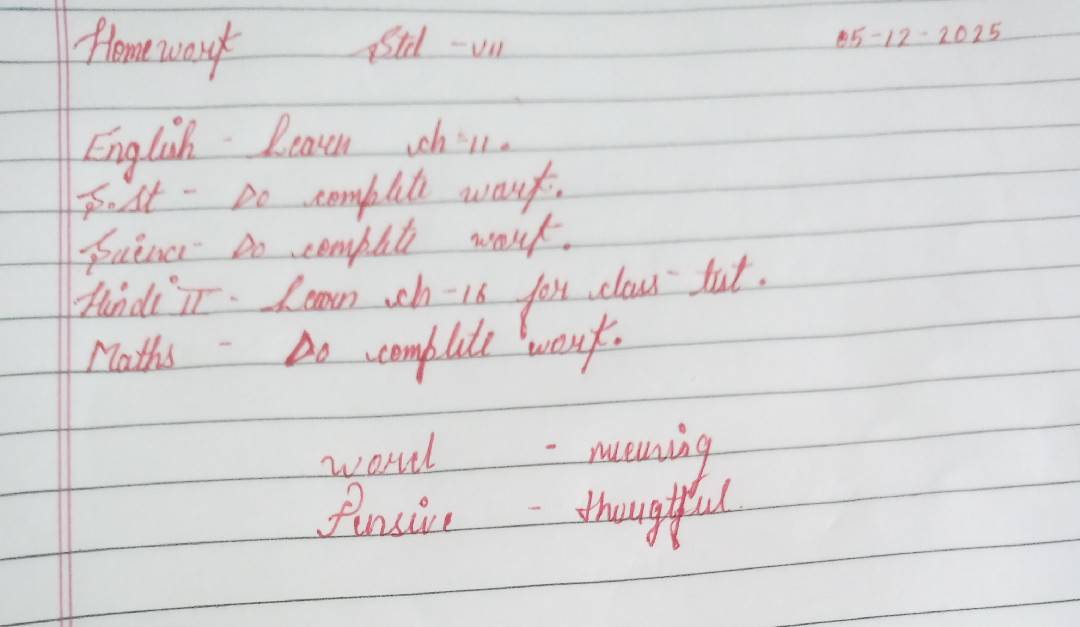 Homework Std - VII 05-12-2025
English - Learn ch-11.
S.St - Do complete work.
Science - Do complete work.
Hindi II - Learn ch-16 for class-test.
Maths - Do complete work.
word - meaning
Pensive - thougtful.